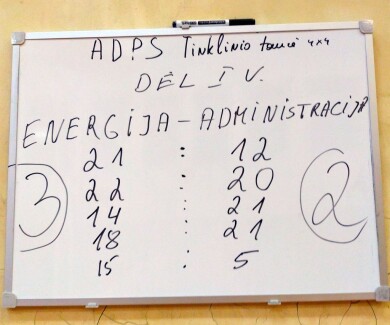 ADPS Tinklinio taurė 4x4
DĖL I V.
ENERGIJA - ADMINISTRACIJA
21 : 12
22 : 20
14 : 21
18 : 21
15 : 5
3
2